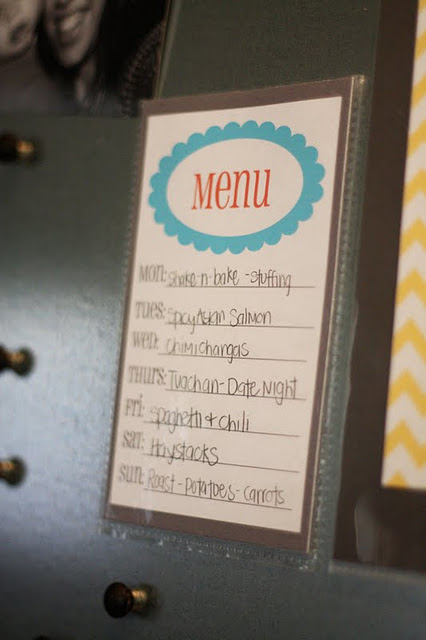 Menu
MON: Shake-n-bake - stuffing
TUES: Spicy Asian Salmon
WED: Chimichangas
THURS: Tuachan - Date Night
FRI: Spaghetti & Chili
SAT: Haystacks
SUN: Roast - Potatoes - Carrots